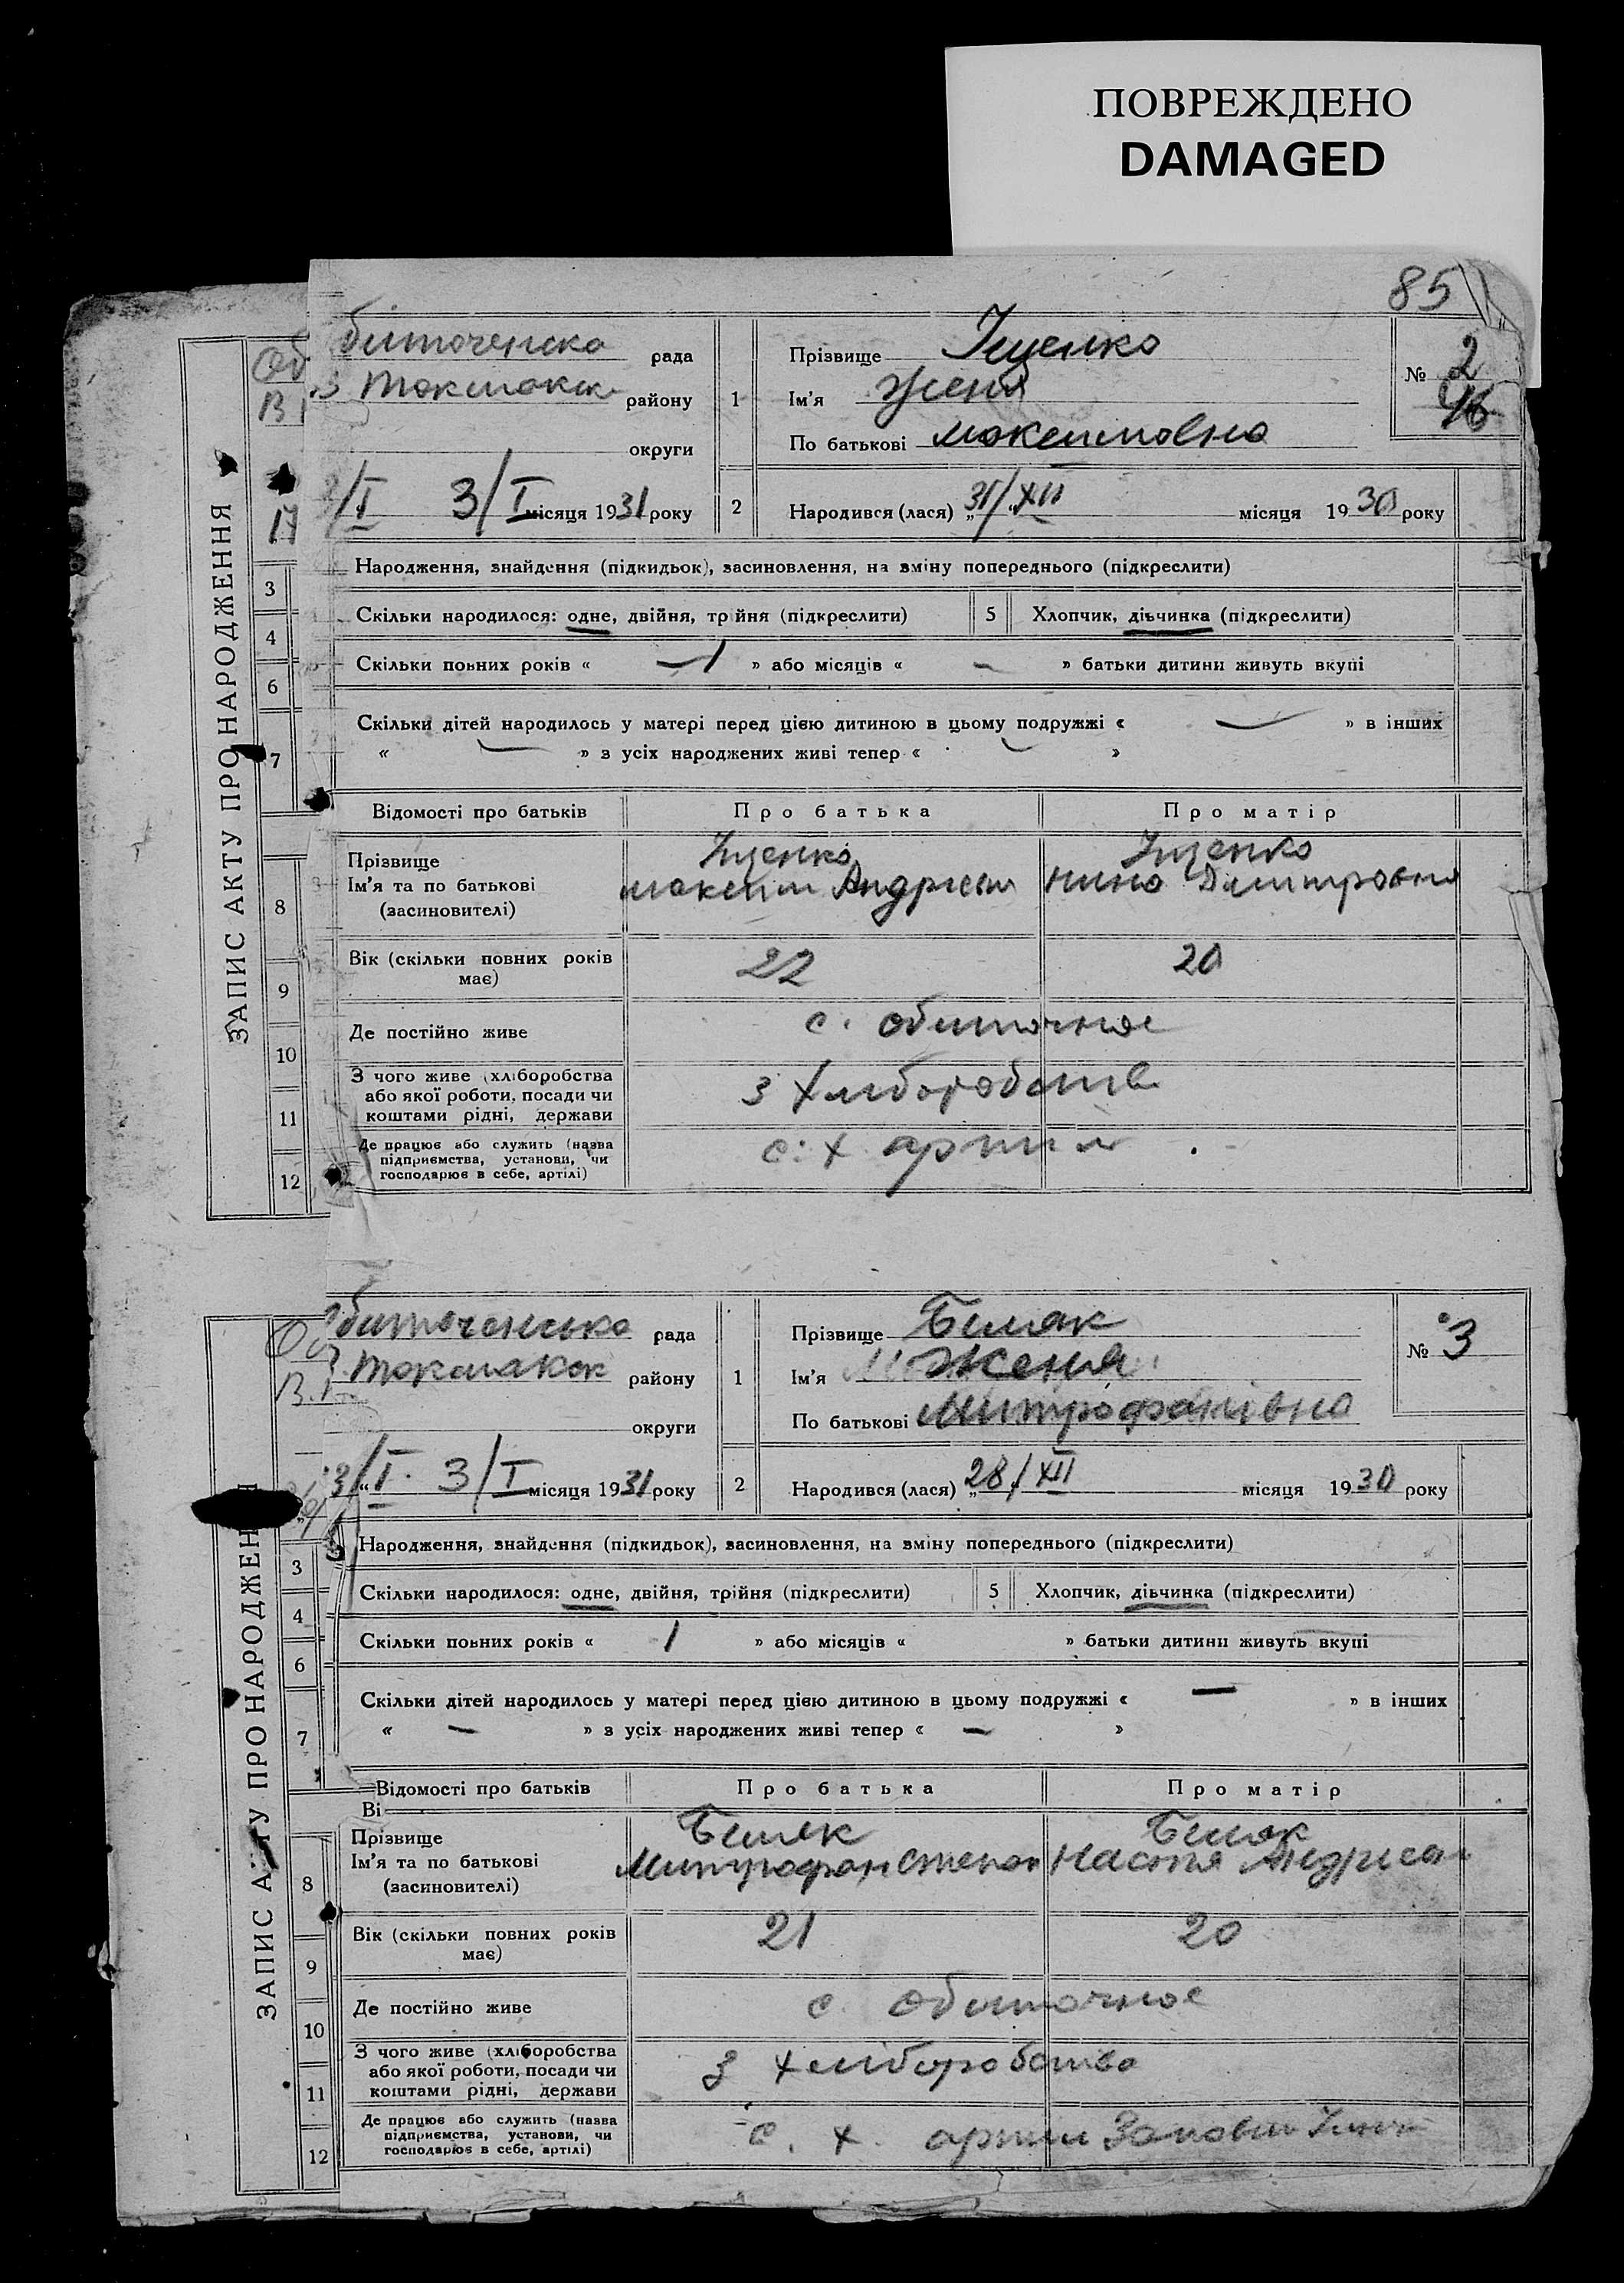 ПОВРЕЖДЕНО
DAMAGED
85
ЗАПИС АКТУ ПРО НАРОДЖЕННЯ
биточенска рада
В Токмакск району
округи
3/I 3/I місяця 1931 року
1
Прізвище Іщенко
Ім'я Женя
По батькові Максимовна
№ 2
2
Народився (лася) „31/XII місяця 1930 року
3
Народження, знайдення (підкидьок), засиновлення, на зміну попереднього (підкреслити)
4
Скільки народилося: одне, двійня, трійня (підкреслити) 5 Хлопчик, дівчинка (підкреслити)
6
Скільки повних років « 1 » або місяців « – » батьки дитини живуть вкупі
7
Скільки дітей народилось у матері перед цією дитиною в цьому подружжі « — » в інших
« — » з усіх народжених живі тепер « — »
Відомості про батьків Про батька Про матір
8
Прізвище Іщенко Іщенко
Ім'я та по батькові Максим Андреев Нина Дмитровна
(засиновителі)
9
Вік (скільки повних років має) 22 20
10
Де постійно живе с. Обиточное
11
З чого живе (хліборобства
або якої роботи, посади чи
коштами рідні, держави
З хліборобств
12
Де працює або служить (назва
підприємства, установи, чи
господарює в себе, артілі)
с. х артил
ЗАПИС АКТУ ПРО НАРОДЖЕННЯ
Обиточенська рада
В. Токмакск району
округи
3/I. 3/I місяця 1931 року
1
Прізвище Біляк
Ім'я Женя
По батькові Митрофанівна
№ 3
2
Народився (лася) „28/XII місяця 1930 року
3
Народження, знайдення (підкидьок), засиновлення, на зміну попереднього (підкреслити)
4
Скільки народилося: одне, двійня, трійня (підкреслити) 5 Хлопчик, дівчинка (підкреслити)
6
Скільки повних років « 1 » або місяців « » батьки дитини живуть вкупі
7
Скільки дітей народилось у матері перед цією дитиною в цьому подружжі « — » в інших
« — » з усіх народжених живі тепер « — »
Відомості про батьків Про батька Про матір
Ві
8
Прізвище Біляк Біляк
Ім'я та по батькові Митрофан Степан Настя Андриев
(засиновителі)
9
Вік (скільки повних років має) 21 20
10
Де постійно живе с. Обиточное
11
З чого живе (хліборобства
або якої роботи, посади чи
коштами рідні, держави
З хліборобства
12
Де працює або служить (назва
підприємства, установи, чи
господарює в себе, артілі)
с. х. артил